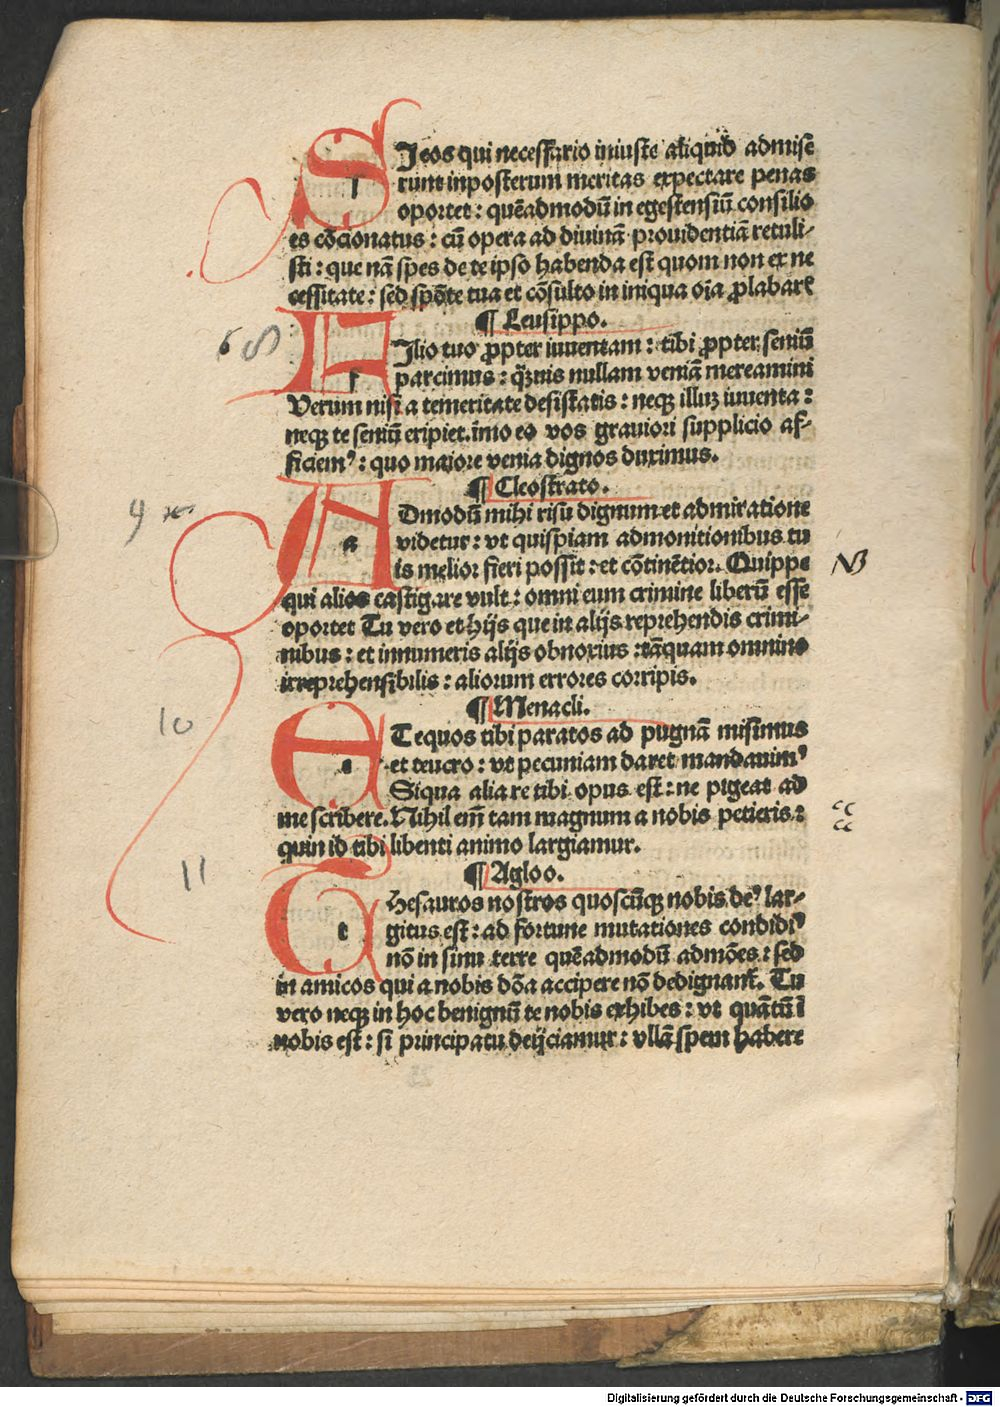 SI eos qui necessario iniuste aliquid admisē
runt inposterum meritas expectare penas
oportet : quēadmodū in egestensiū consilio
es cōcionatus : cū opera ad diuinā prouidentiā retuli-
sti : que nā spes de te ipso habenda est quom non ex ne
cessitate : sed spōte tua et cōsulto in iniqua oīa ꝓlabarꝭ
¶ Leusippo.
FIlio tuo ꝓpter iuuentam : tibi ꝓpter seniū
parcimus : q̄zuis nullam veniā mereamini
Verum nisi a temeritate desistatis : neqꝫ illuꝫ iuuenta :
neqꝫ te seniū eripiet. īmo eo vos grauiori supplicio af-
ficiemꝰ : quo maiore venia dignos duximus.
¶ Cleostrato.
ADmodū mihi risu dignum et admiratione
videtur : vt quispiam admonitionibus tu
is melior fieri possit : et cōtinētior. Quippe
qui alios castigare vult : omni eum crimine liberū esse
oportet Tu vero et hijs que in alijs reprehendis crimi-
nibus : et innumeris alijs obnoxius : tāquam omnino
irreprehensibilis : aliorum errores corripis.
¶ Menacli.
ET equos tibi paratos ad pugnā misimus
et teucro : vt pecuniam daret mandauimꝰ
Siqua alia re tibi opus est : ne pigeat ad
me scribere. Nihil em̄ tam magnum a nobis petieris :
quin id tibi libenti animo largiamur.
¶ Agloo.
THesauros nostros quoscūqꝫ nobis deꝰ lar-
gitus est : ad fortune mutationes condidiꝰ
nō in sinu terre quēadmodū admōes : sed
in amicos qui a nobis dōa accipere nō dedignant̄. Tu
vero neqꝫ in hoc benignū te nobis exhibes : vt quātū ī
nobis est : si principatu deijciamur : vllā spem habere
8
9
NB
10
11
Digitalisierung gefördert durch die Deutsche Forschungsgemeinschaft - DFG